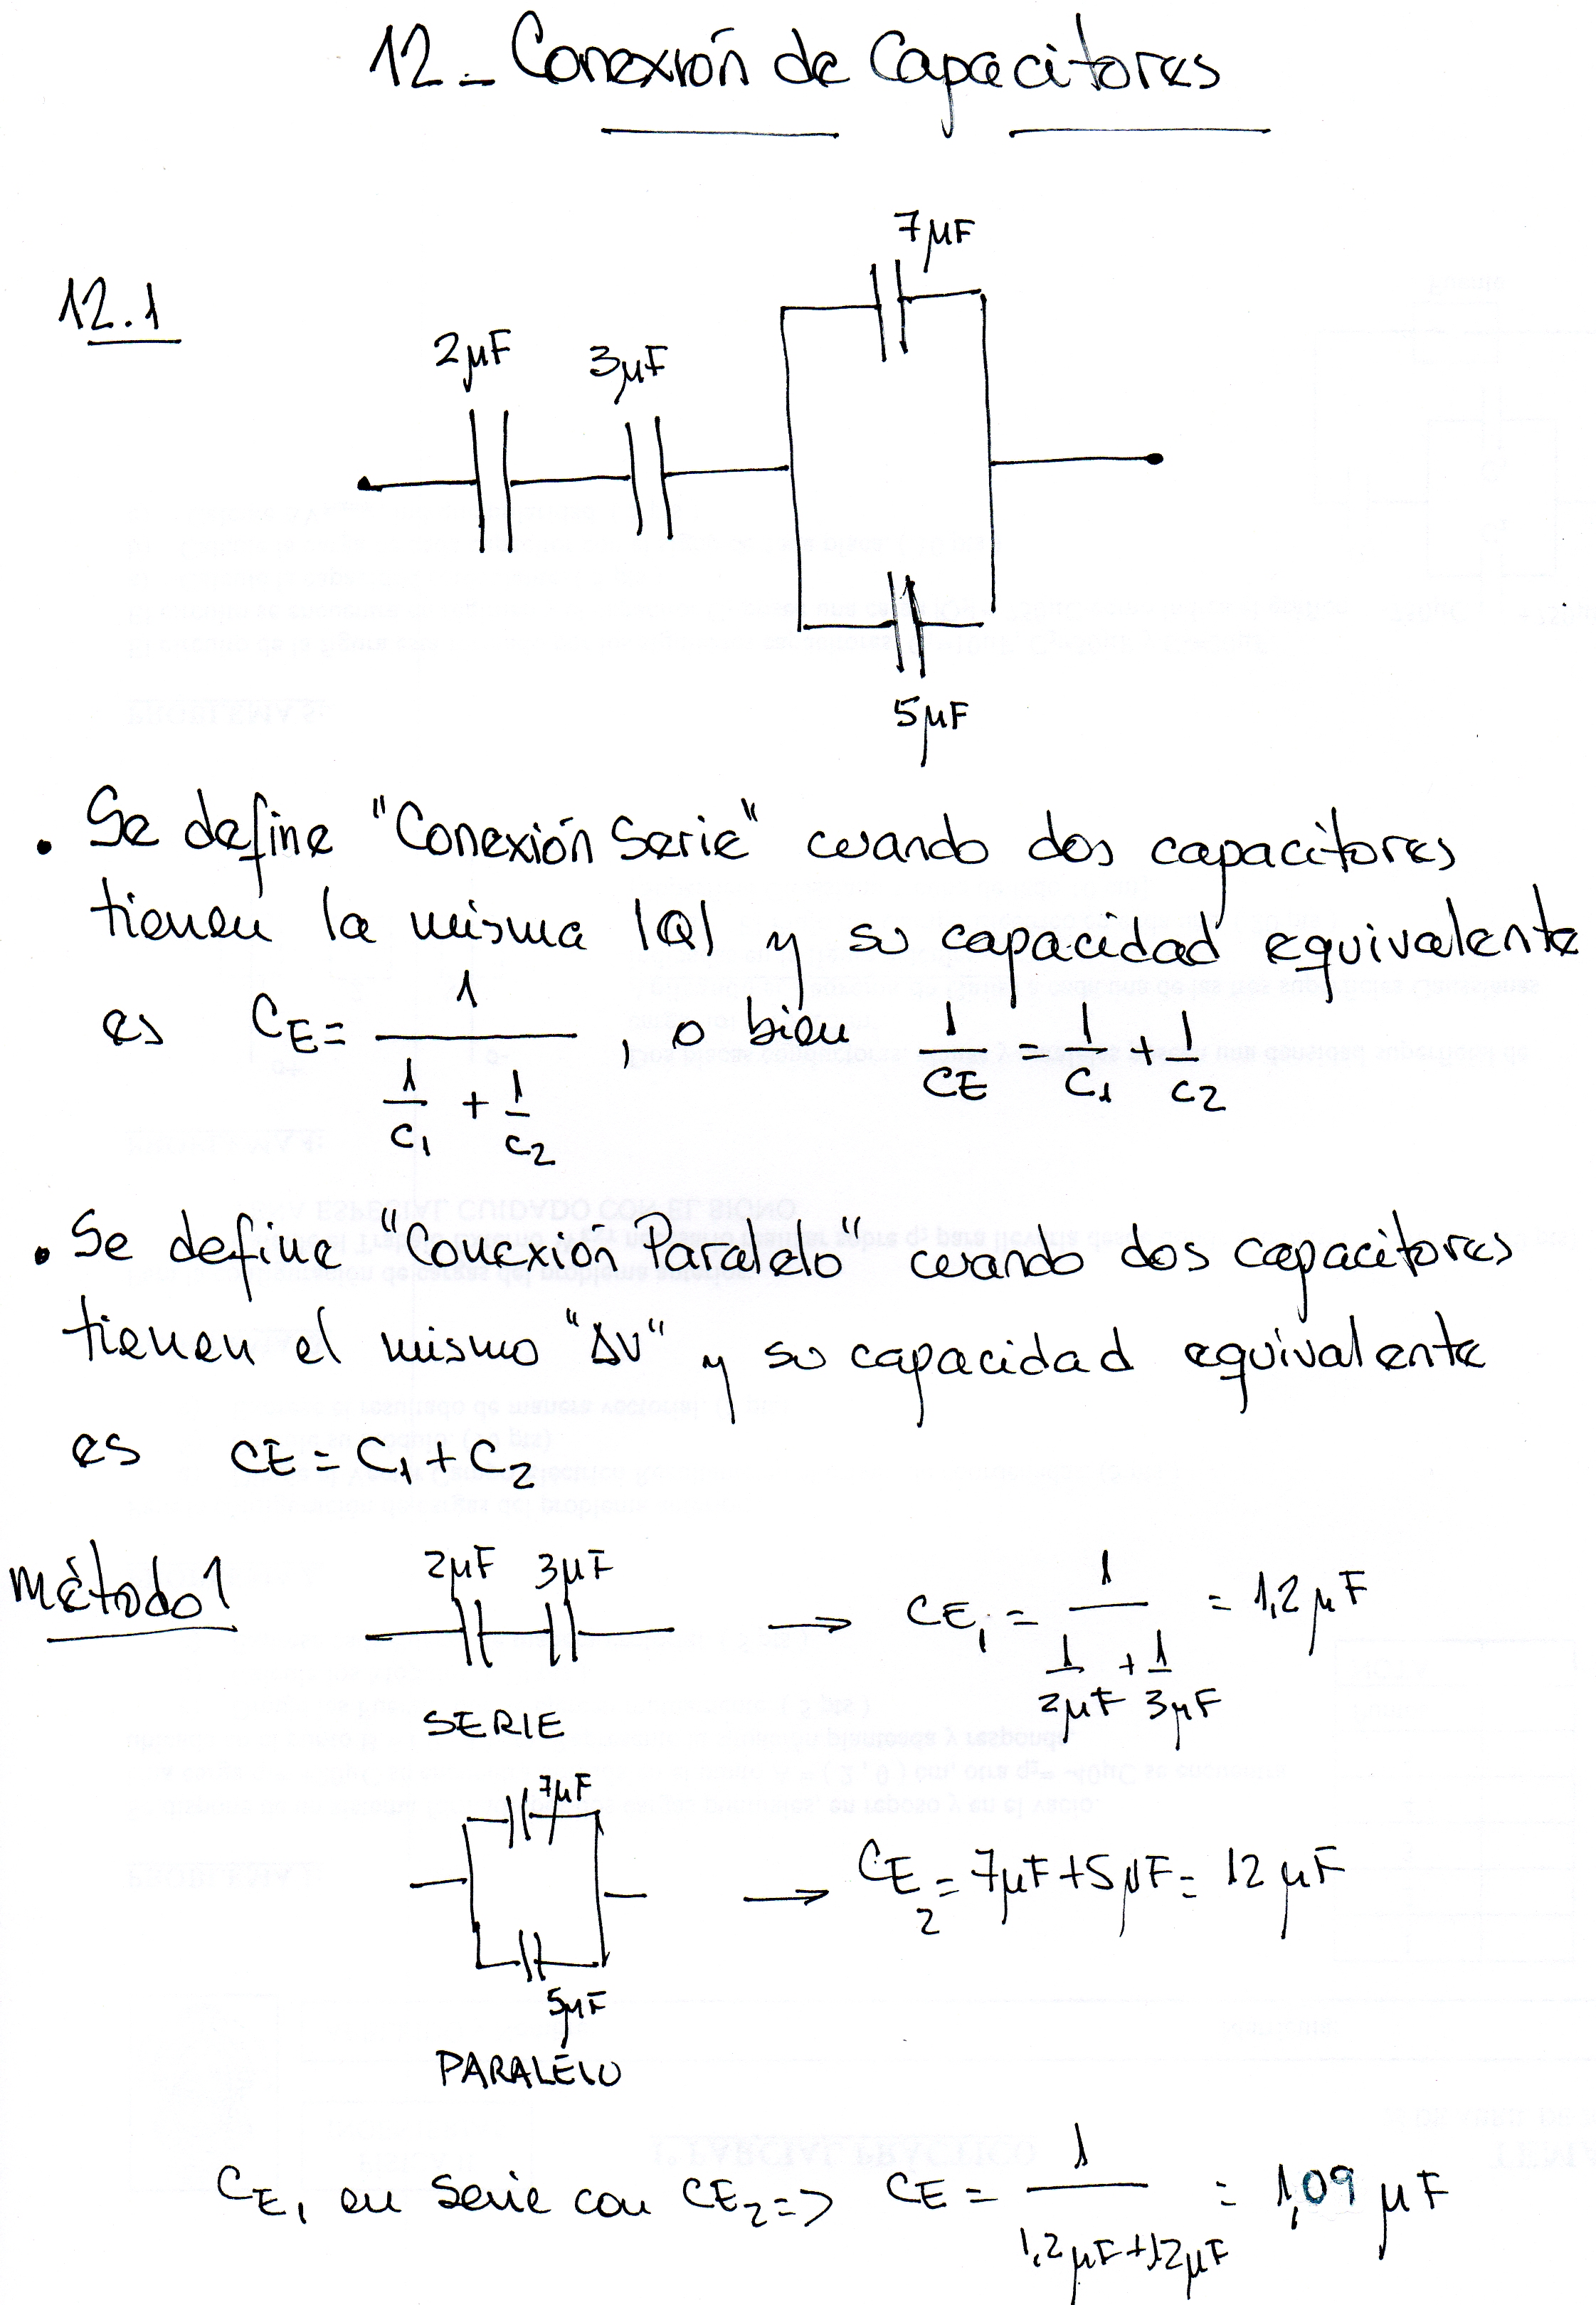 12_ Conexión de Capacitores
12.1
7μF
2μF
3μF
5μF
. Se define "Conexión Serie" cuando dos capacitores
tienen la misma |Q| y su capacidad equivalente
es CE = 1 / (1/C1 + 1/C2) , o bien 1/CE = 1/C1 + 1/C2
. Se define "Conexión Paralelo" cuando dos capacitores
tienen el mismo "ΔV" y su capacidad equivalente
es CE = C1 + C2
Método 1
2μF 3μF
→ CE1 = 1 / (1/2μF + 1/3μF) = 1,2 μF
SERIE
7μF
→ CE2 = 7μF + 5μF = 12 μF
5μF
PARALELO
CE1 en Serie con CE2 => CE = 1 / (1,2μF + 12μF) = 1,09 μF